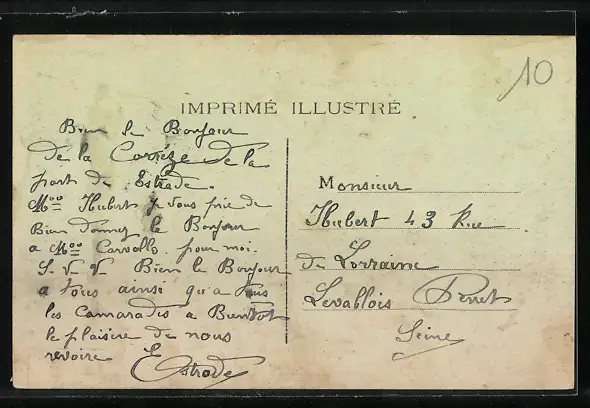 10
IMPRIMÉ ILLUSTRÉ
Bien le Bonjour
de la Corrèze de la
part de Estrade.
Hubert je vous prie de
Bien donnez le Bonjour
a Carvallo. pour moi.
S. V. V. Bien le Bonjour
a tous ainsi qu'a tous
les Camarades a Bientot
le plaisire de nous
revoire Estrade
Monsieur
Hubert 43 Rue
de Lorraine
Levallois Perret
Seine